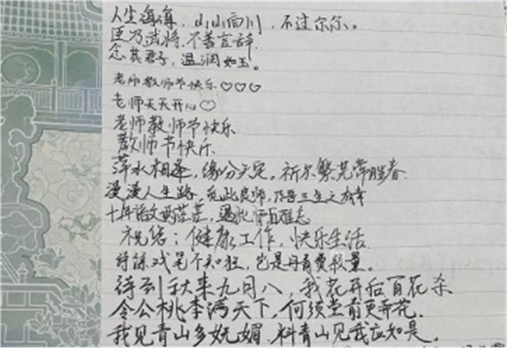 人生海海，山山而川，不过尔尔。
臣乃武将，不善言辞
念其君子，温润如玉。
老师教师节快乐♡♡♡
老师天天开心♡
老师教师节快乐
教师节快乐
萍水相逢，缘分天定，祈尔繁花常胜春
漫漫人生路，见此良师，乃吾三生之有幸
十年语文两茫茫，遇水师百难忘
祝您：健康工作，快乐生活
待到秋来九月八，我花开后百花杀
令公桃李满天下，何须堂前更弄花。
我见青山多妩媚，料青山见我应如是。